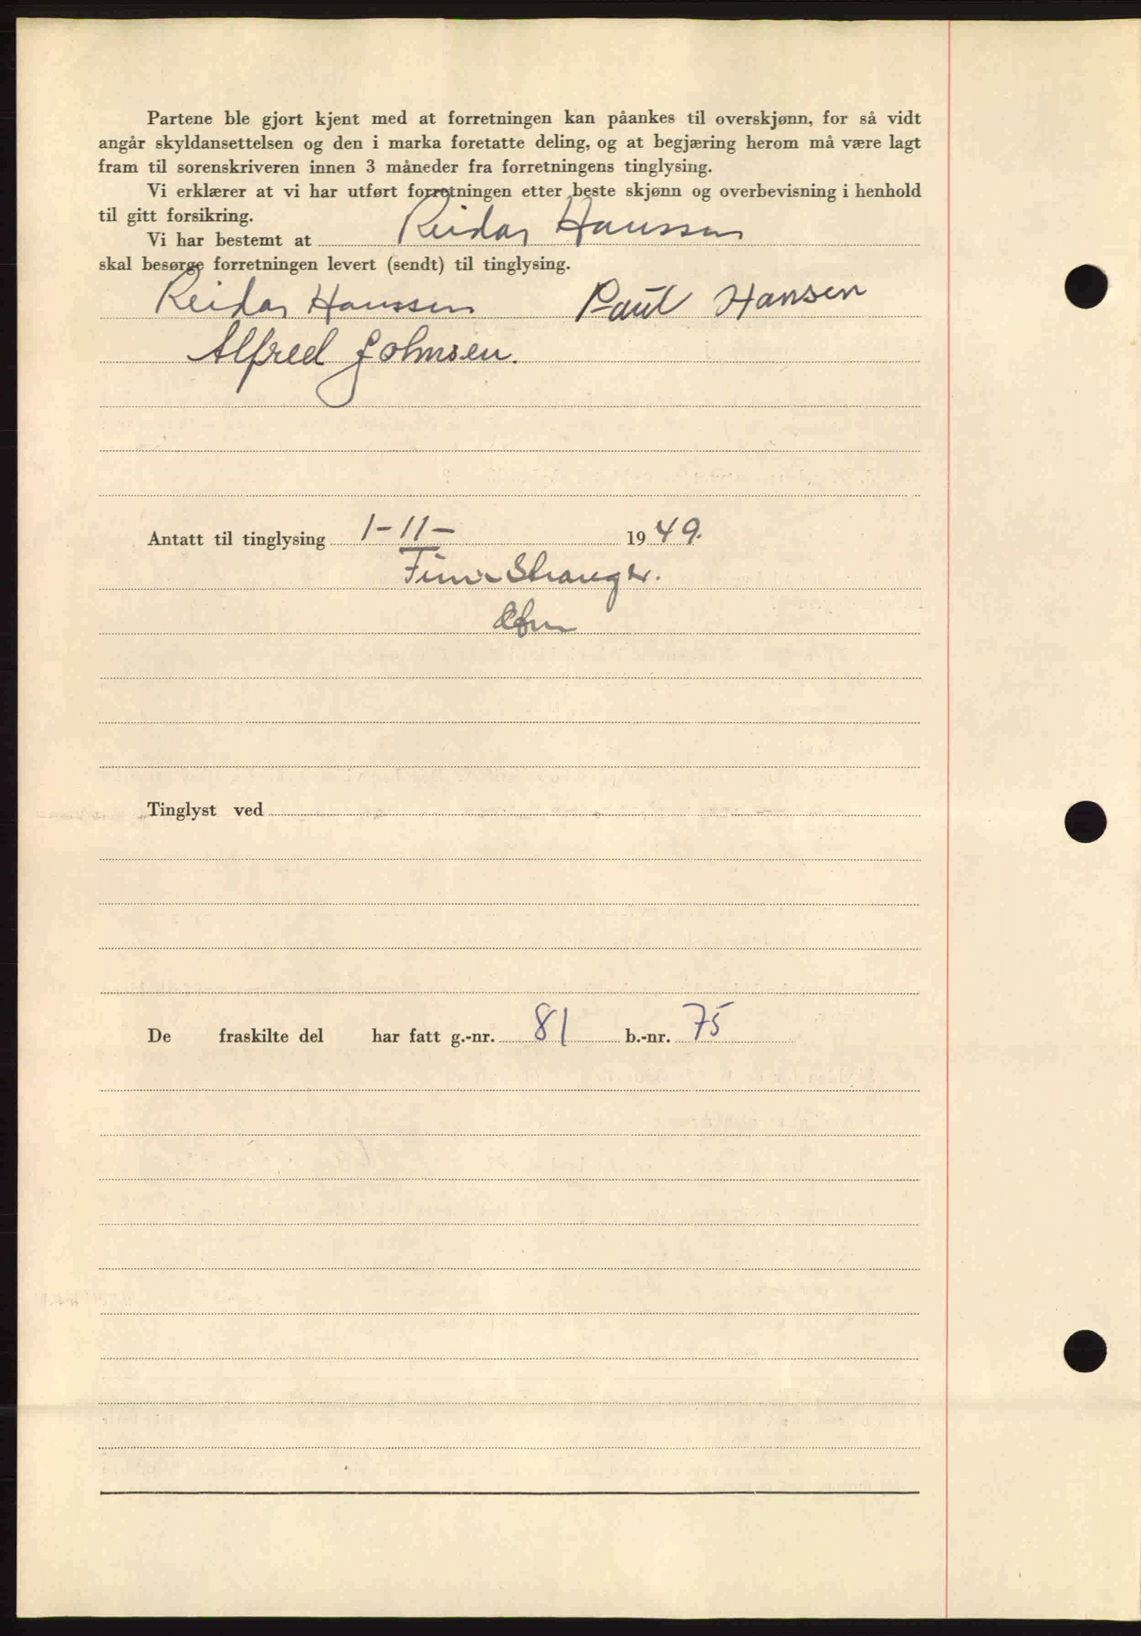 Partene ble gjort kjent med at forretningen kan påankes til overskjønn, for så vidt
angår skyldansettelsen og den i marka foretatte deling, og at begjæring herom må være lagt
fram til sorenskriveren innen 3 måneder fra forretningens tinglysing.
Vi erklærer at vi har utført forretningen etter beste skjønn og overbevisning i henhold
til gitt forsikring.
Vi har bestemt at Reidar Hanssen
skal besørge forretningen levert (sendt) til tinglysing.
Reidar Hanssen Paul Hansen
Alfred Johnsen.
Antatt til tinglysing 1-11- 1949.
Finn Stranger.
Tinglyst ved
De fraskilte del har fatt g.-nr. 81 b.-nr. 75